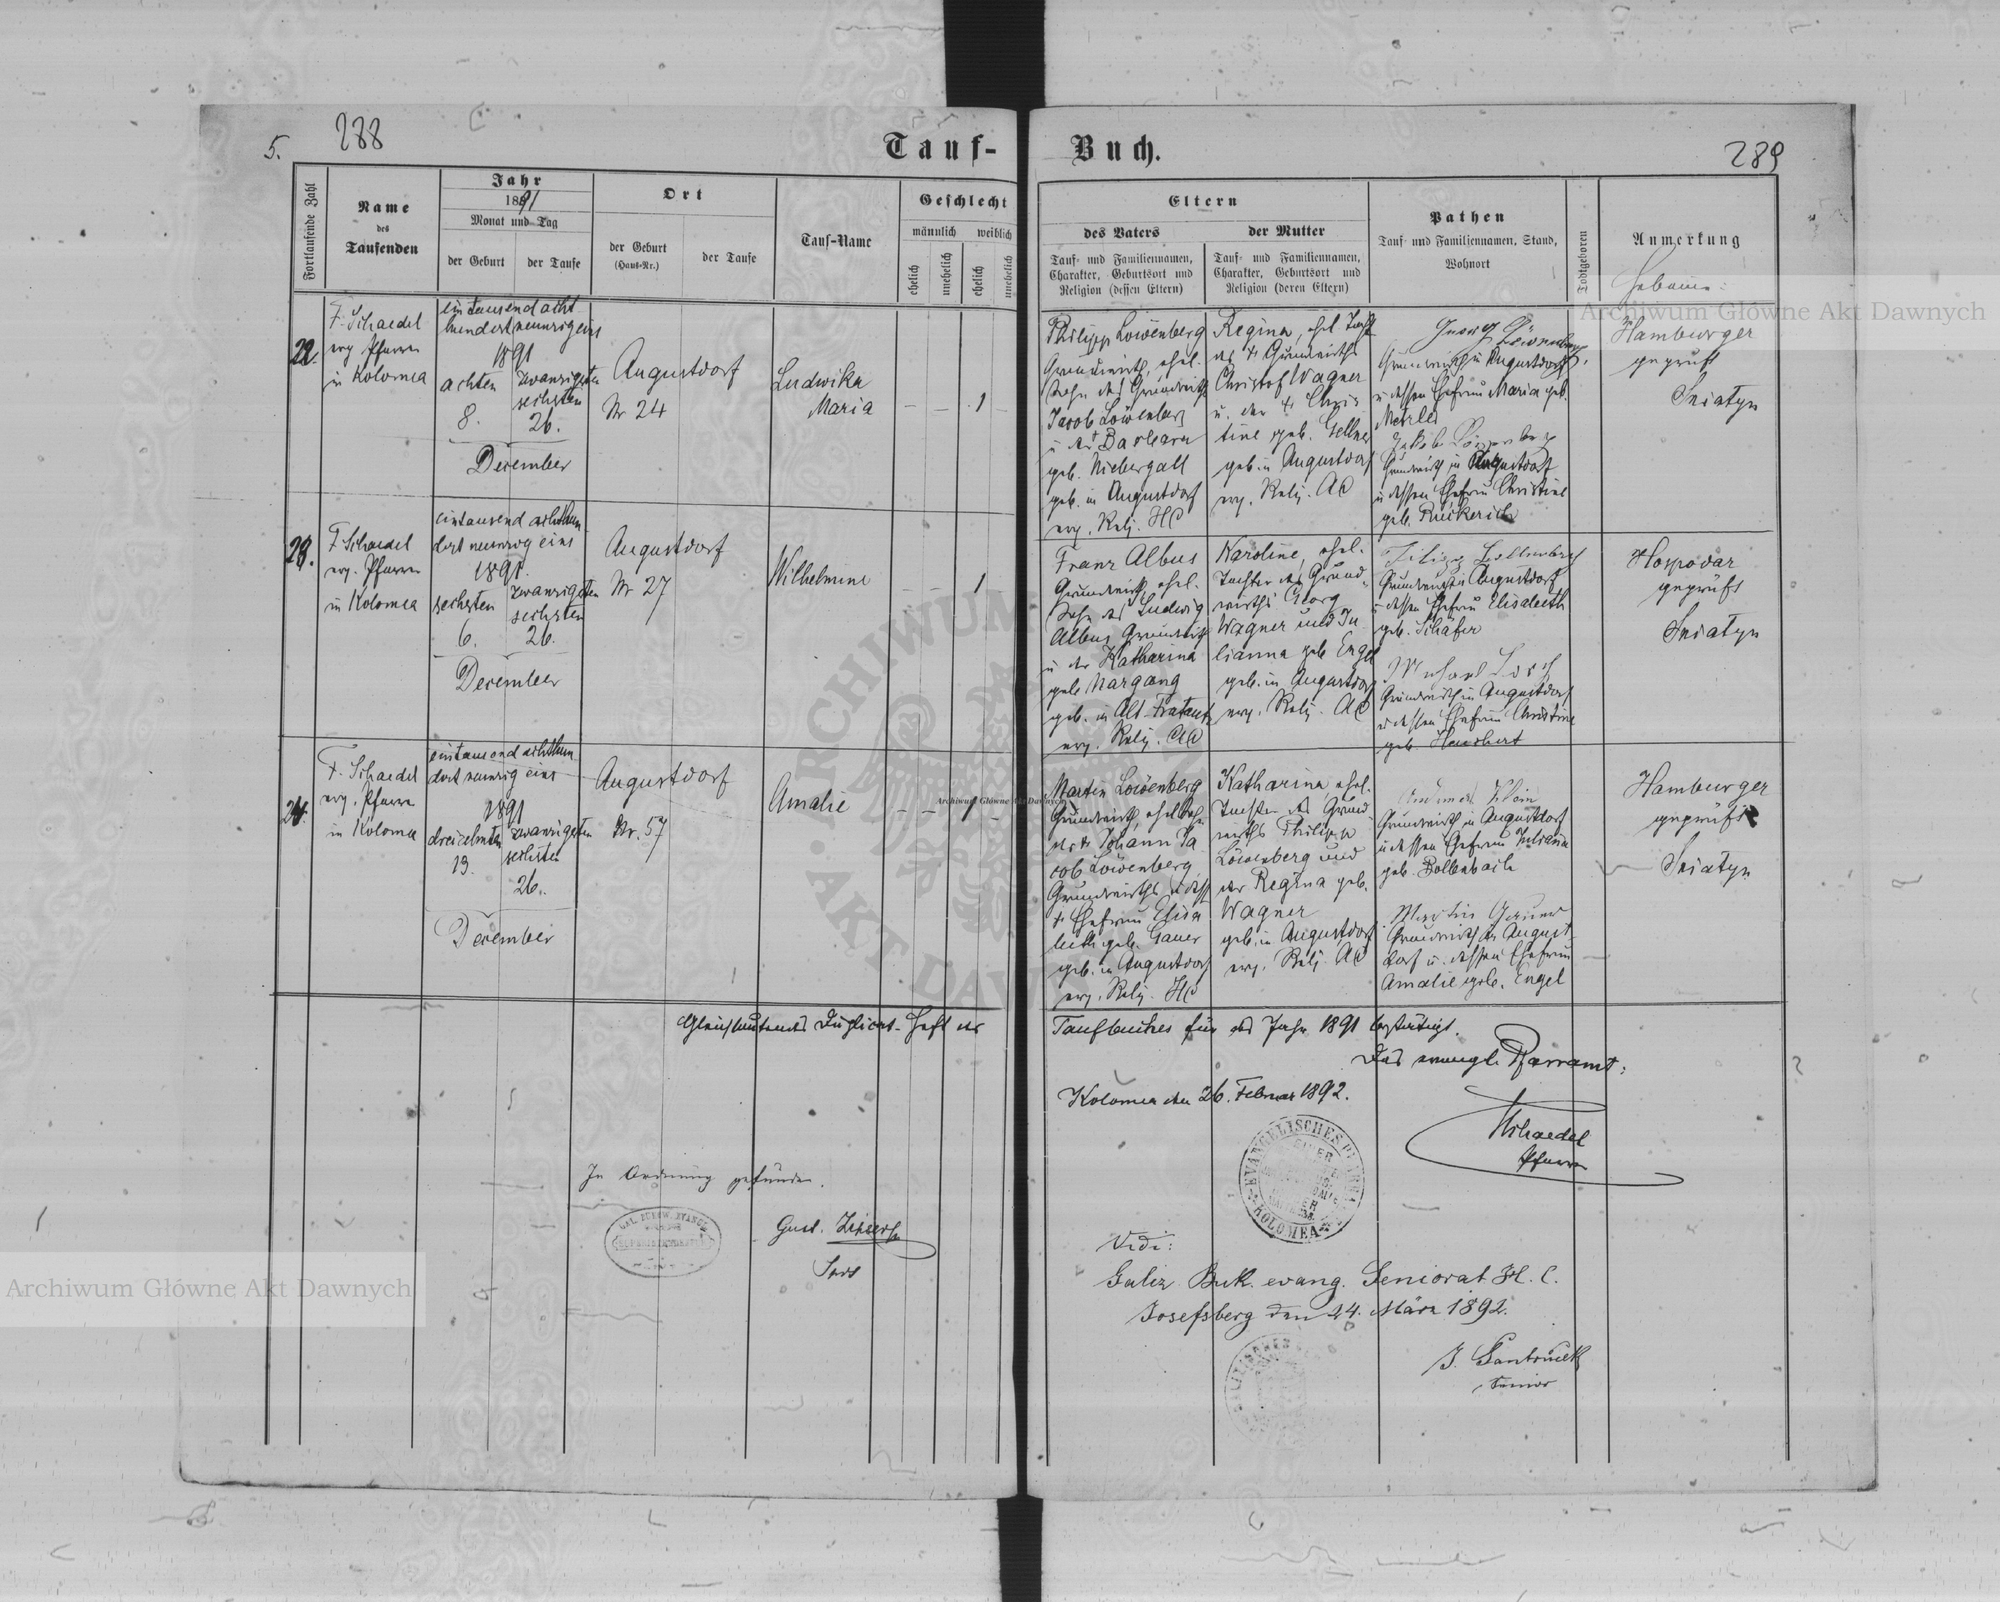 5.
288
Tauf-
Buch.
289
Fortlaufende Zahl
Name
des
Taufenden
Jahr
1891
Monat und Tag
der Geburt
der Taufe
Ort
der Geburt
(Haus-Nr.)
der Taufe
Tauf-Name
Geschlecht
männlich
weiblich
ehelich
unehelich
ehelich
unehelich
Eltern
des Vaters
Tauf- und Familiennamen,
Charakter, Geburtsort und
Religion (dessen Eltern)
der Mutter
Tauf- und Familiennamen,
Charakter, Geburtsort und
Religion (deren Eltern)
Pathen
Tauf- und Familiennamen, Stand,
Wohnort
Todtgeboren
Anmerkung
22.
F. Schaedel
evg. Pfarrer
in Kolomea
eintausend acht
hundert neunzig eins
1891
achten
8.
zwanzigsten
sechsten
26.
December
Augustdorf
Nr 24
Ludwika
Maria
— — 1 —
Philipp Löwenberg
Grundwirth, ehel.
Sohn des Grundwirths
Jacob Löwenberg
u. der Barbara
geb. Niebergall
geb. in Augustdorf
evg. Relig. HC
Regina, ehel. Tocht
des † Grundwirths
Christof Wagner
u. der † Chris
tine geb. Gellner
geb. in Augustdorf
evg. Relig. AC
Georg Löwenberg
Grundwirth in Augustdorf,
u dessen Ehefrau Maria geb.
Jakob Löwenberg
Grundwirth in Augustdorf
u dessen Ehefrau Christine
geb. Rückerich
Hamburger
geprüft
Sniatyn
23.
F. Schaedel
evg. Pfarrer
in Kolomea
eintausend achthun
dert neunzig eins
1891
sechsten
6.
zwanzigsten
sechsten
26.
December
Augustdorf
Nr 27
Wilhelmine
— — 1
Franz Albus
Grundwirth, ehel.
Sohn des Ludwig
Albus Grundwirth
u der Katharina
geb. Nargang
geb. in Alt-Fratautz
evg. Relig. AC
Karoline, ehel.
Tochter des Grund-
wirths Georg
Wagner und Ju
lianna geb. Engel
geb. in Augustdorf
evg. Relig. AC
Filipp Bollenbach
Grundwirth in Augustdorf
u dessen Ehefrau Elisabeth
geb. Schäfer
Grundwirth in Augustdorf
u dessen Ehefrau Christine
Hospodar
geprüft
Sniatyn
24.
F. Schaedel
evg. Pfarrer
in Kolomea
eintausend achthun
dert neunzig eins
1891
dreizehnten
13.
zwanzigsten
sechsten
26.
December
Augustdorf
Nr. 57
Amalie
— — 1 —
Martin Löwenberg
Grundwirth, ehel. Sohn
des † Johann Ja
cob Löwenberg
Grundwirths u dess
† Ehefrau Elisa
beth geb. Gauer
geb. in Augustdorf
evg. Relig. HC
Katharina ehel.
Tochter des Grund
wirths Philipp
Löwenberg und
der Regina geb.
Wagner
geb. in Augustdorf
evg. Relig. AC
Klein
Grundwirth in Augustdorf
u dessen Ehefrau Juliana
geb. Bollenbach
Martin Gauer
Grundwirth in August
dorf u. dessen Ehefrau
Amalie geb. Engel
Hamburger
geprüft
Sniatyn
Gleichlautendes Duplicat-Heft des
Taufbuches für das Jahr 1891 bestätigt.
Das evangl. Pfarramt:
Kolomea den 26. Februar 1892.
FSchaedel
Pfarrer
EVANGELISCHES
KOLOMEA
In Ordnung gefunden.
Vidi:
Galiz. Buk. evang. Seniorat H. C.
Josefsberg den 24. März 1892.
Senior
Archiwum Główne Akt Dawnych
Archiwum Główne Akt Dawnych
Archiwum Główne Akt Dawnych
ARCHIWUM
AKT DAWNYCH